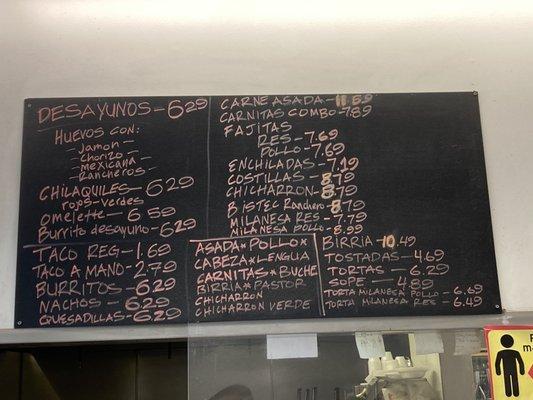 DESAYUNOS - 6.29
HUEVOS CON:
- Jamon -
- Chorizo -
- mexicana -
- Rancheros -
CHILAQUILES - 6.29
rojos-verdes
Omelette - 6.59
Burrito desayuno - 6.29
TACO REG - 1.69
TACO A MANO - 2.79
BURRITOS - 6.29
NACHOS - 6.29
QUESADILLAS - 6.29
CARNE ASADA - 11.59
CARNITAS COMBO - 7.89
FAJITAS
RES - 7.69
POLLO - 7.69
ENCHILADAS - 7.19
COSTILLAS - 8.79
CHICHARRON - 8.79
BISTEC Ranchero - 8.79
MILANESA RES - 7.79
MILANESA POLLO - 8.99
ASADA * POLLO *
CABEZA * LENGUA
CARNITAS * BUCHE
BIRRIA * PASTOR
CHICHARRON
CHICHARRON VERDE
BIRRIA - 10.49
TOSTADAS - 4.69
TORTAS - 6.29
SOPE - 4.89
TORTA MILANESA POLLO - 6.69
TORTA MILANESA RES - 6.49